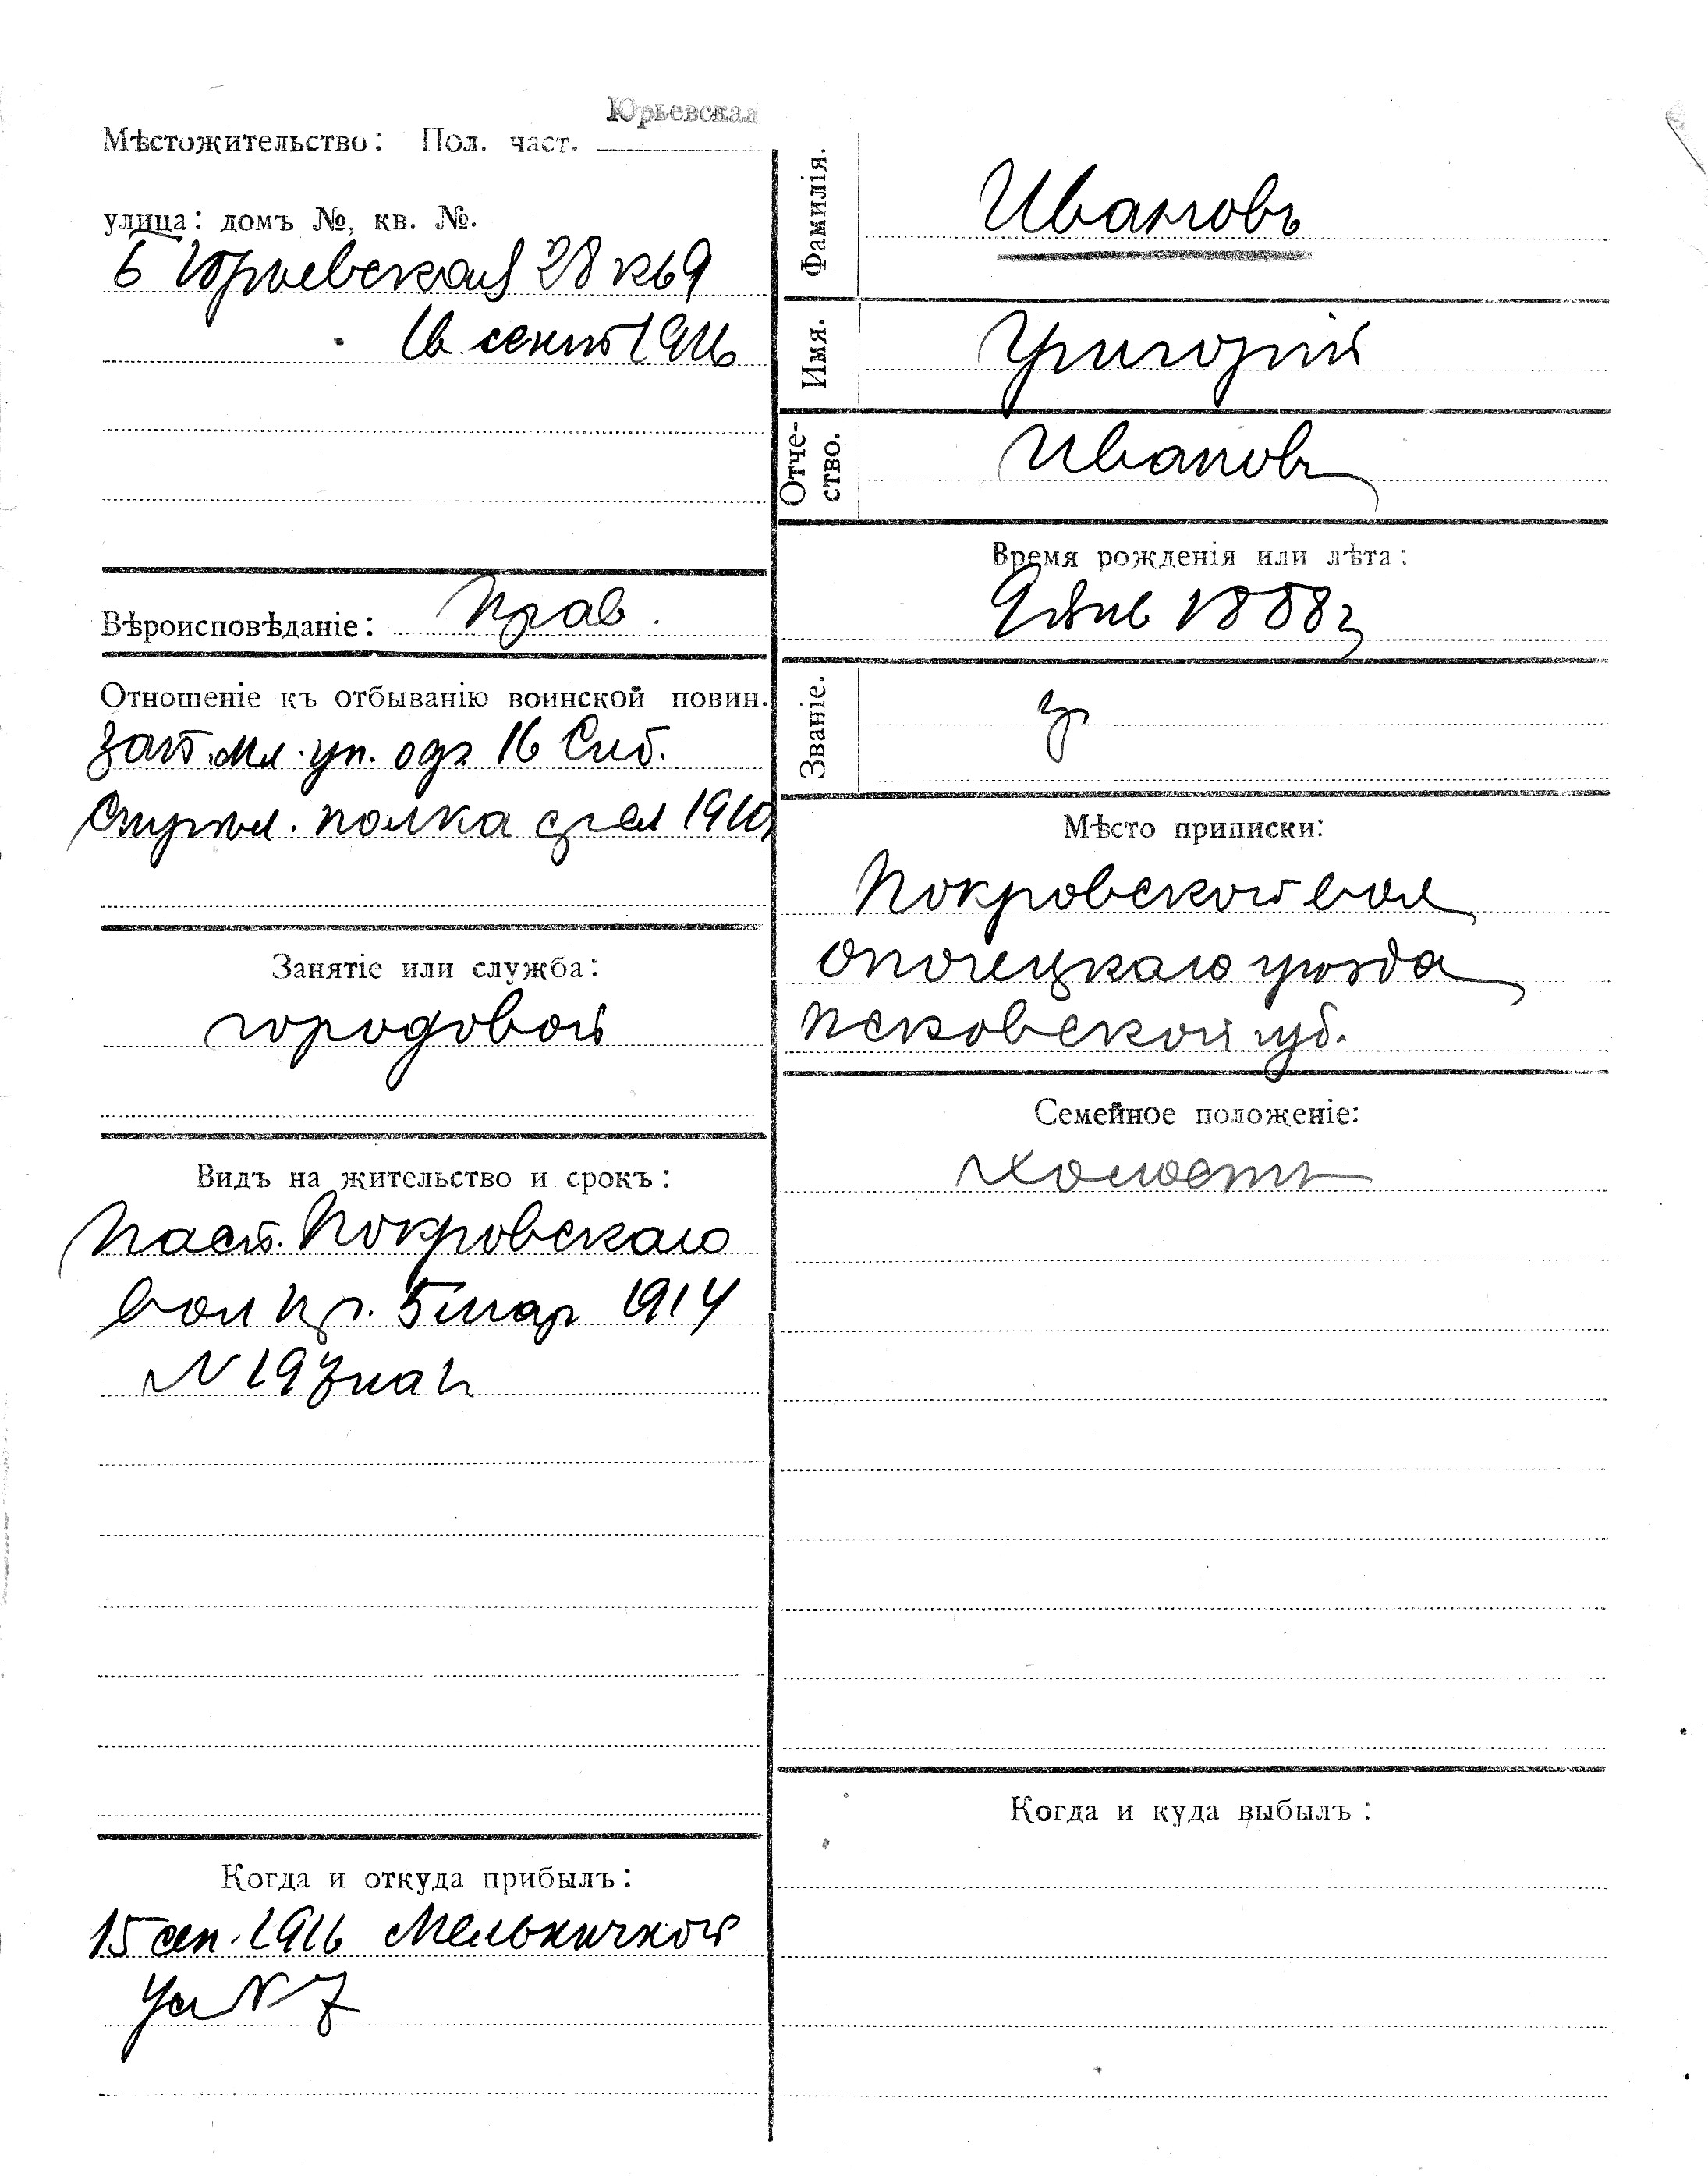 Юрьевская
Мѣстожительство: Пол. част.
улица: домъ №, кв. №.
Б Юрьевская 28 кв 9
16 сент 1916
Вѣроисповѣданіе: Прав.
Отношеніе къ отбыванію воинской повин.
зап. мл. ун. оф. 16 Сиб.
Стрѣл. полка 1910
Занятіе или служба:
городовой
Видъ на жительство и срокъ:
Пасп. Покровскаго
вол пр. 5 мар 1914
N 197
Когда и откуда прибылъ:
15 сен. 1916 Мельничной
ул N 7
Фамилія. Ивановъ
Имя. Григорій
Отче-
ство. Ивановъ
Время рожденія или лѣта:
янв 1888 г
Званіе. кр
Мѣсто приписки:
Покровской вол
Опочецкаго уѣзда
Псковской губ.
Семейное положеніе:
холостъ
Когда и куда выбылъ: